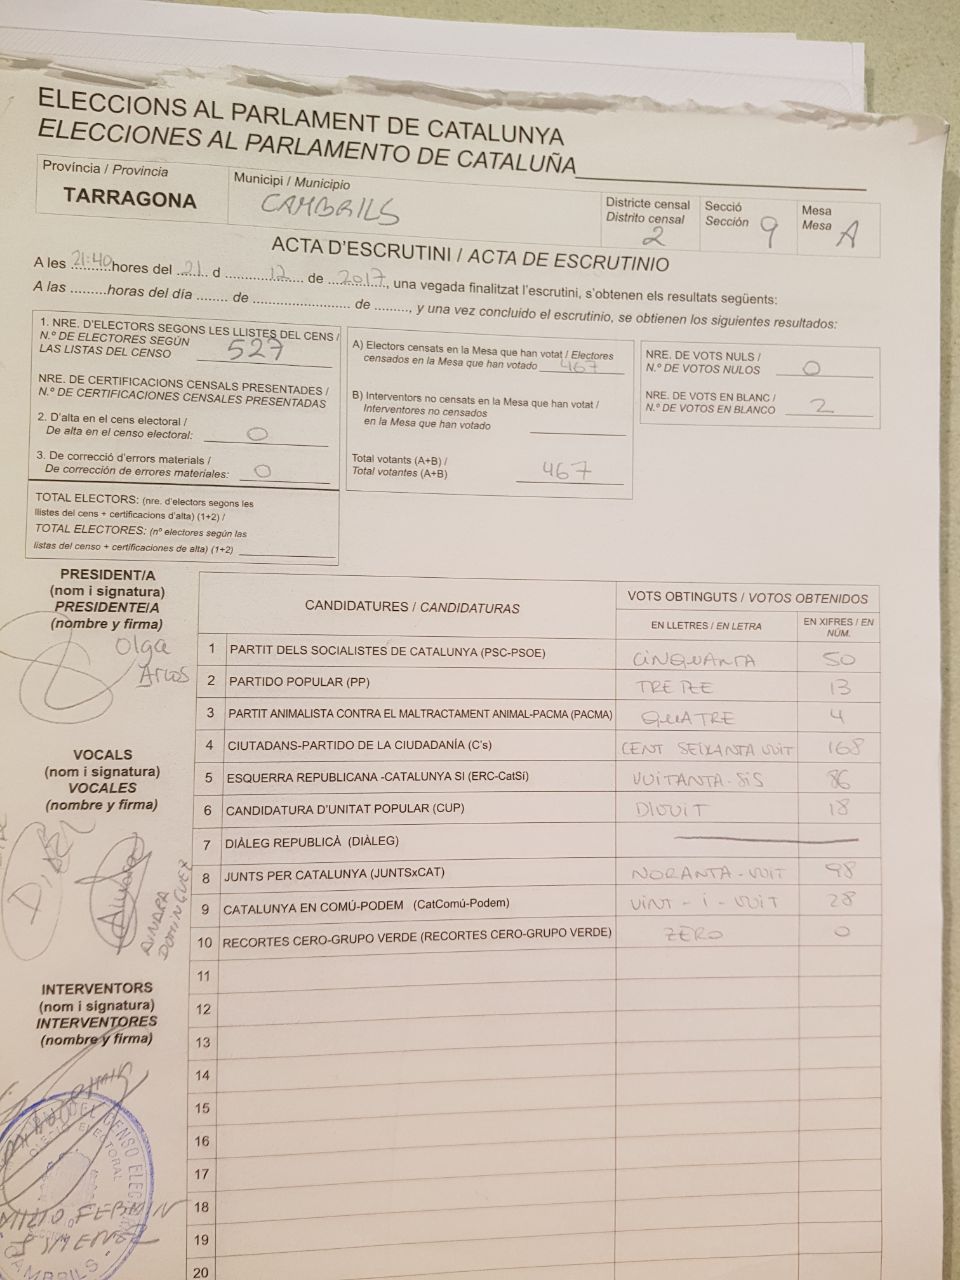 ELECCIONS AL PARLAMENT DE CATALUNYA
ELECCIONES AL PARLAMENTO DE CATALUÑA
Província / Provincia
TARRAGONA
Municipi / Municipio
CAMBRILS
Districte censal
Distrito censal
2
Secció
Sección
9
Mesa
Mesa
A
ACTA D'ESCRUTINI / ACTA DE ESCRUTINIO
A les 21:40 hores del 21 d 12 de 2017, una vegada finalitzat l'escrutini, s'obtenen els resultats següents:
A las ......... horas del día ........ de ........................ de ........., y una vez concluido el escrutinio, se obtienen los siguientes resultados:
1. NRE. D'ELECTORS SEGONS LES LLISTES DEL CENS /
N.º DE ELECTORES SEGÚN
LAS LISTAS DEL CENSO 527
NRE. DE CERTIFICACIONS CENSALS PRESENTADES /
N.º DE CERTIFICACIONES CENSALES PRESENTADAS
2. D'alta en el cens electoral /
De alta en el censo electoral: 0
3. De correcció d'errors materials /
De corrección de errores materiales: 0
TOTAL ELECTORS: (nre. d'electors segons les
llistes del cens + certificacions d'alta) (1+2) /
TOTAL ELECTORES: (nº electores según las
listas del censo + certificaciones de alta) (1+2)
A) Electors censats en la Mesa que han votat / Electores
censados en la Mesa que han votado 467
B) Interventors no censats en la Mesa que han votat /
Interventores no censados
en la Mesa que han votado
Total votants (A+B) /
Total votantes (A+B) 467
NRE. DE VOTS NULS /
N.º DE VOTOS NULOS 0
NRE. DE VOTS EN BLANC /
N.º DE VOTOS EN BLANCO 2
PRESIDENT/A
(nom i signatura)
PRESIDENTE/A
(nombre y firma)
Olga
Arcos
VOCALS
(nom i signatura)
VOCALES
(nombre y firma)
AINARA
DOMINGUEZ
INTERVENTORS
(nom i signatura)
INTERVENTORES
(nombre y firma)
CAMBRILS
CANDIDATURES / CANDIDATURAS
VOTS OBTINGUTS / VOTOS OBTENIDOS
EN LLETRES / EN LETRA
EN XIFRES / EN NÚM.
1 PARTIT DELS SOCIALISTES DE CATALUNYA (PSC-PSOE) CINQUANTA 50
2 PARTIDO POPULAR (PP) TRETZE 13
3 PARTIT ANIMALISTA CONTRA EL MALTRACTAMENT ANIMAL-PACMA (PACMA) QUATRE 4
4 CIUTADANS-PARTIDO DE LA CIUDADANÍA (C's) CENT SEIXANTA VUIT 168
5 ESQUERRA REPUBLICANA -CATALUNYA SI (ERC-CatSí) VUITANTA-SIS 86
6 CANDIDATURA D'UNITAT POPULAR (CUP) DIVUIT 18
7 DIÀLEG REPUBLICÀ (DIÀLEG)
8 JUNTS PER CATALUNYA (JUNTSxCAT) NORANTA-VUIT 98
9 CATALUNYA EN COMÚ-PODEM (CatComú-Podem) VINT-I-VUIT 28
10 RECORTES CERO-GRUPO VERDE (RECORTES CERO-GRUPO VERDE) ZERO 0
11
12
13
14
15
16
17
18
19
20